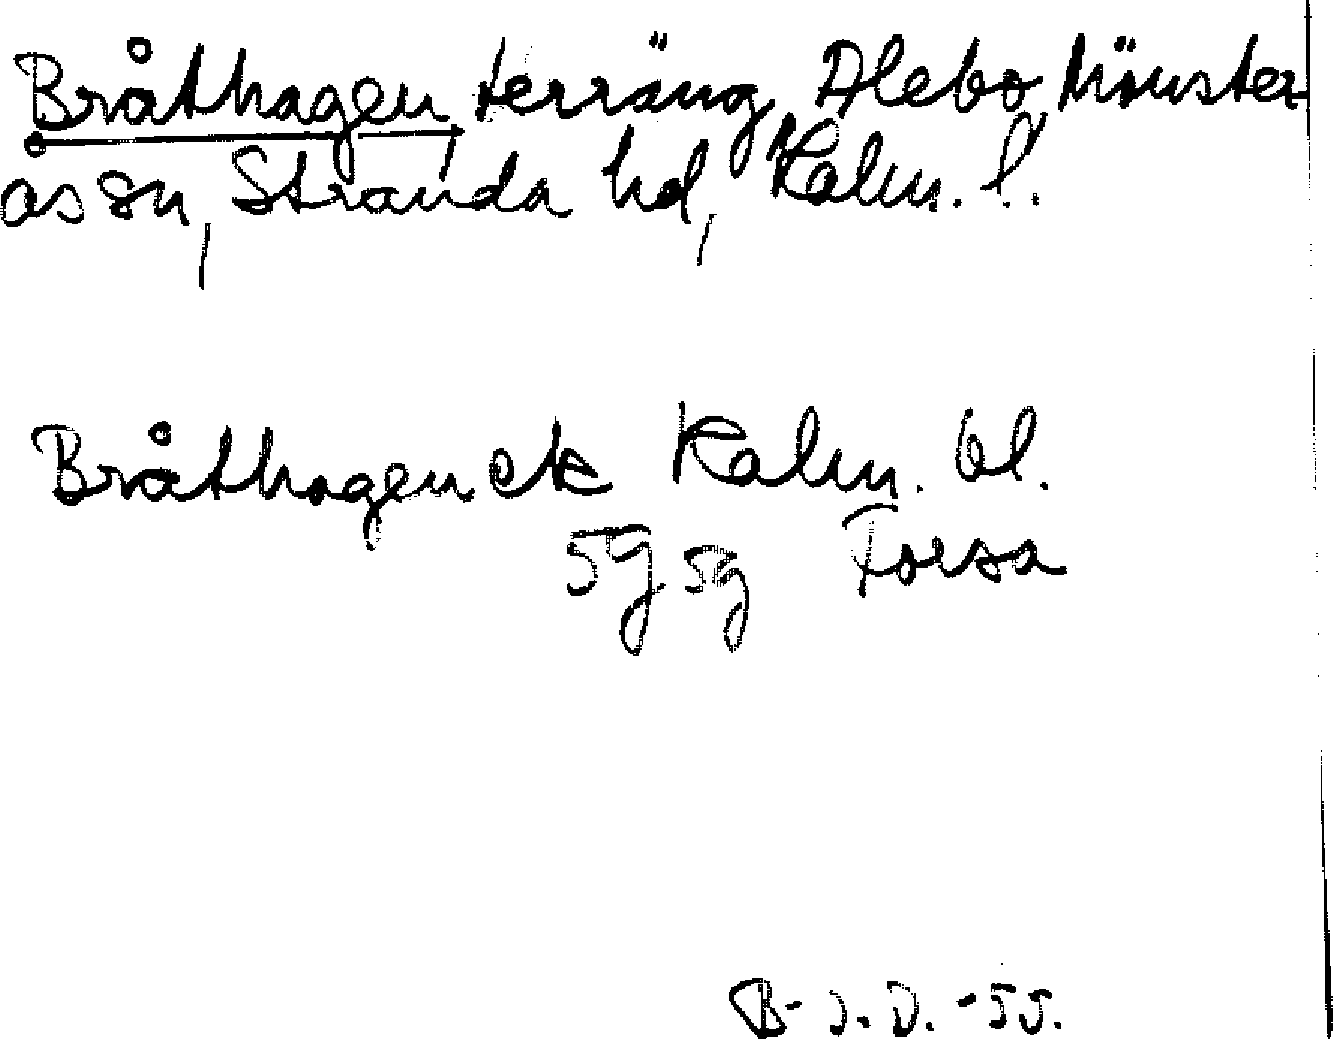 Bråthagen, terräng, Alebo, Mönster
ås sn, Stranda hd, Kalm. l.
Bråthagen ek Kalm. bl.
5g 5g Forsa
B- J. D. -55.